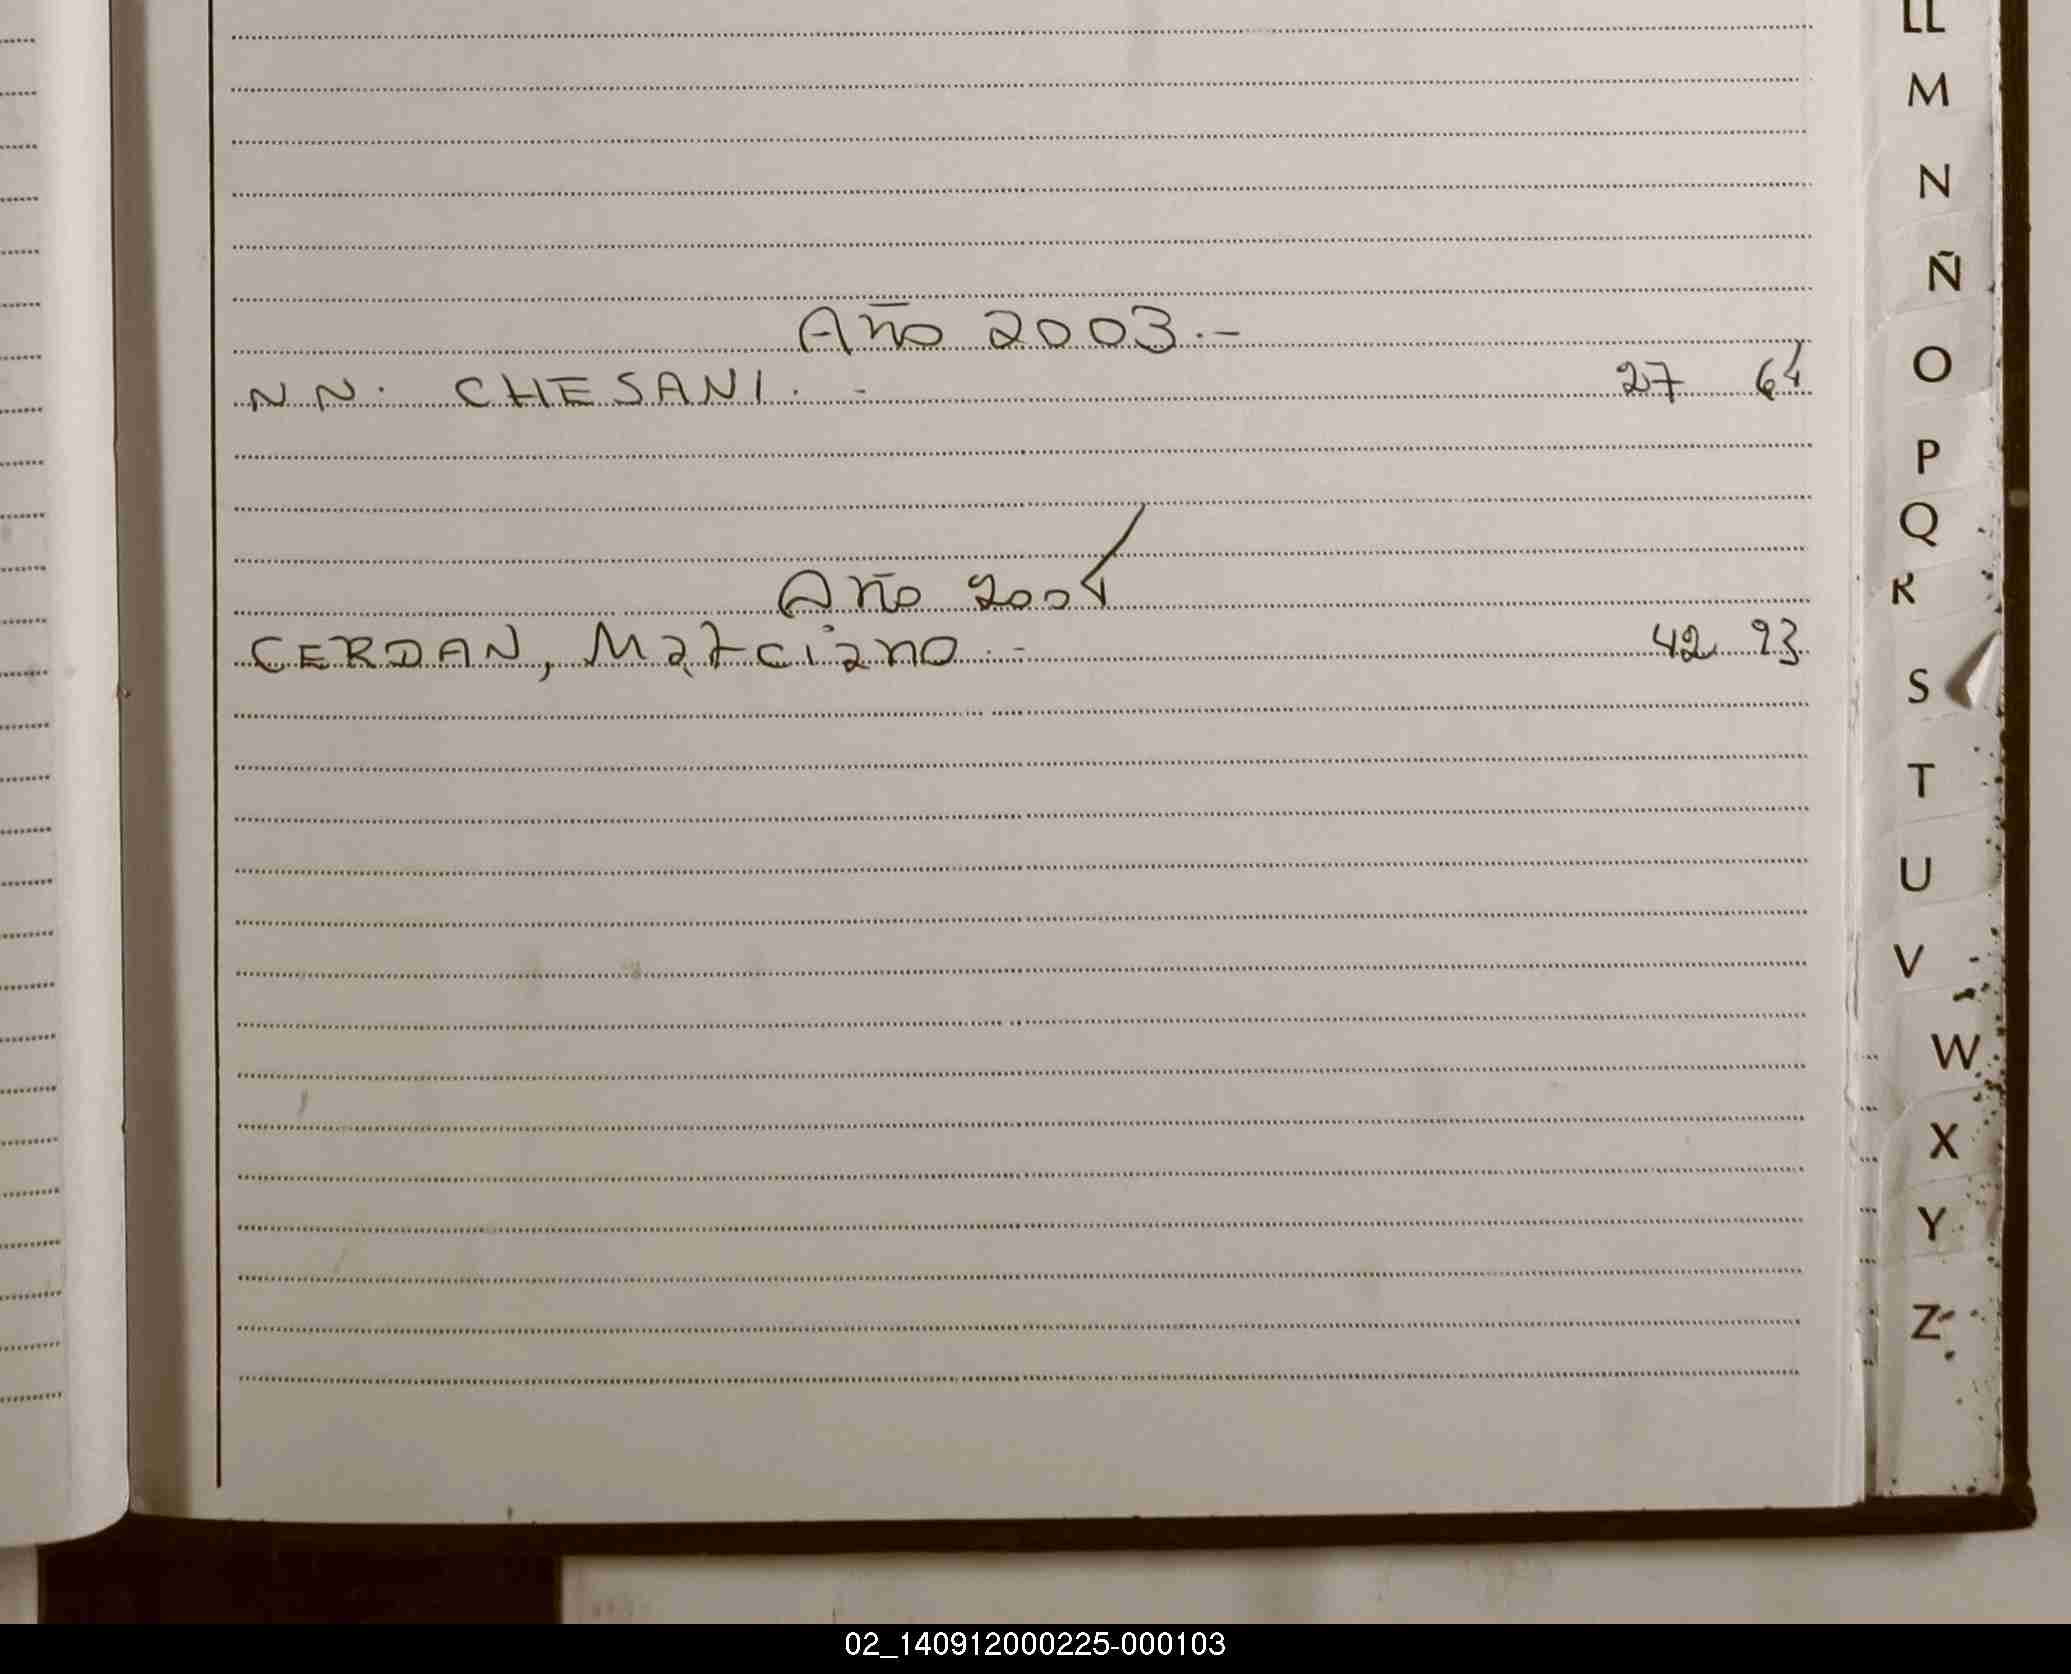 LL
M
N
Ñ
Año 2003.-
O
NN. CHESANI. - 27 64
P
Q
Año 2004
R
CERDAN, Marciano.- 42 93
S
T
U
V
W
X
Y
Z
02_140912000225-000103